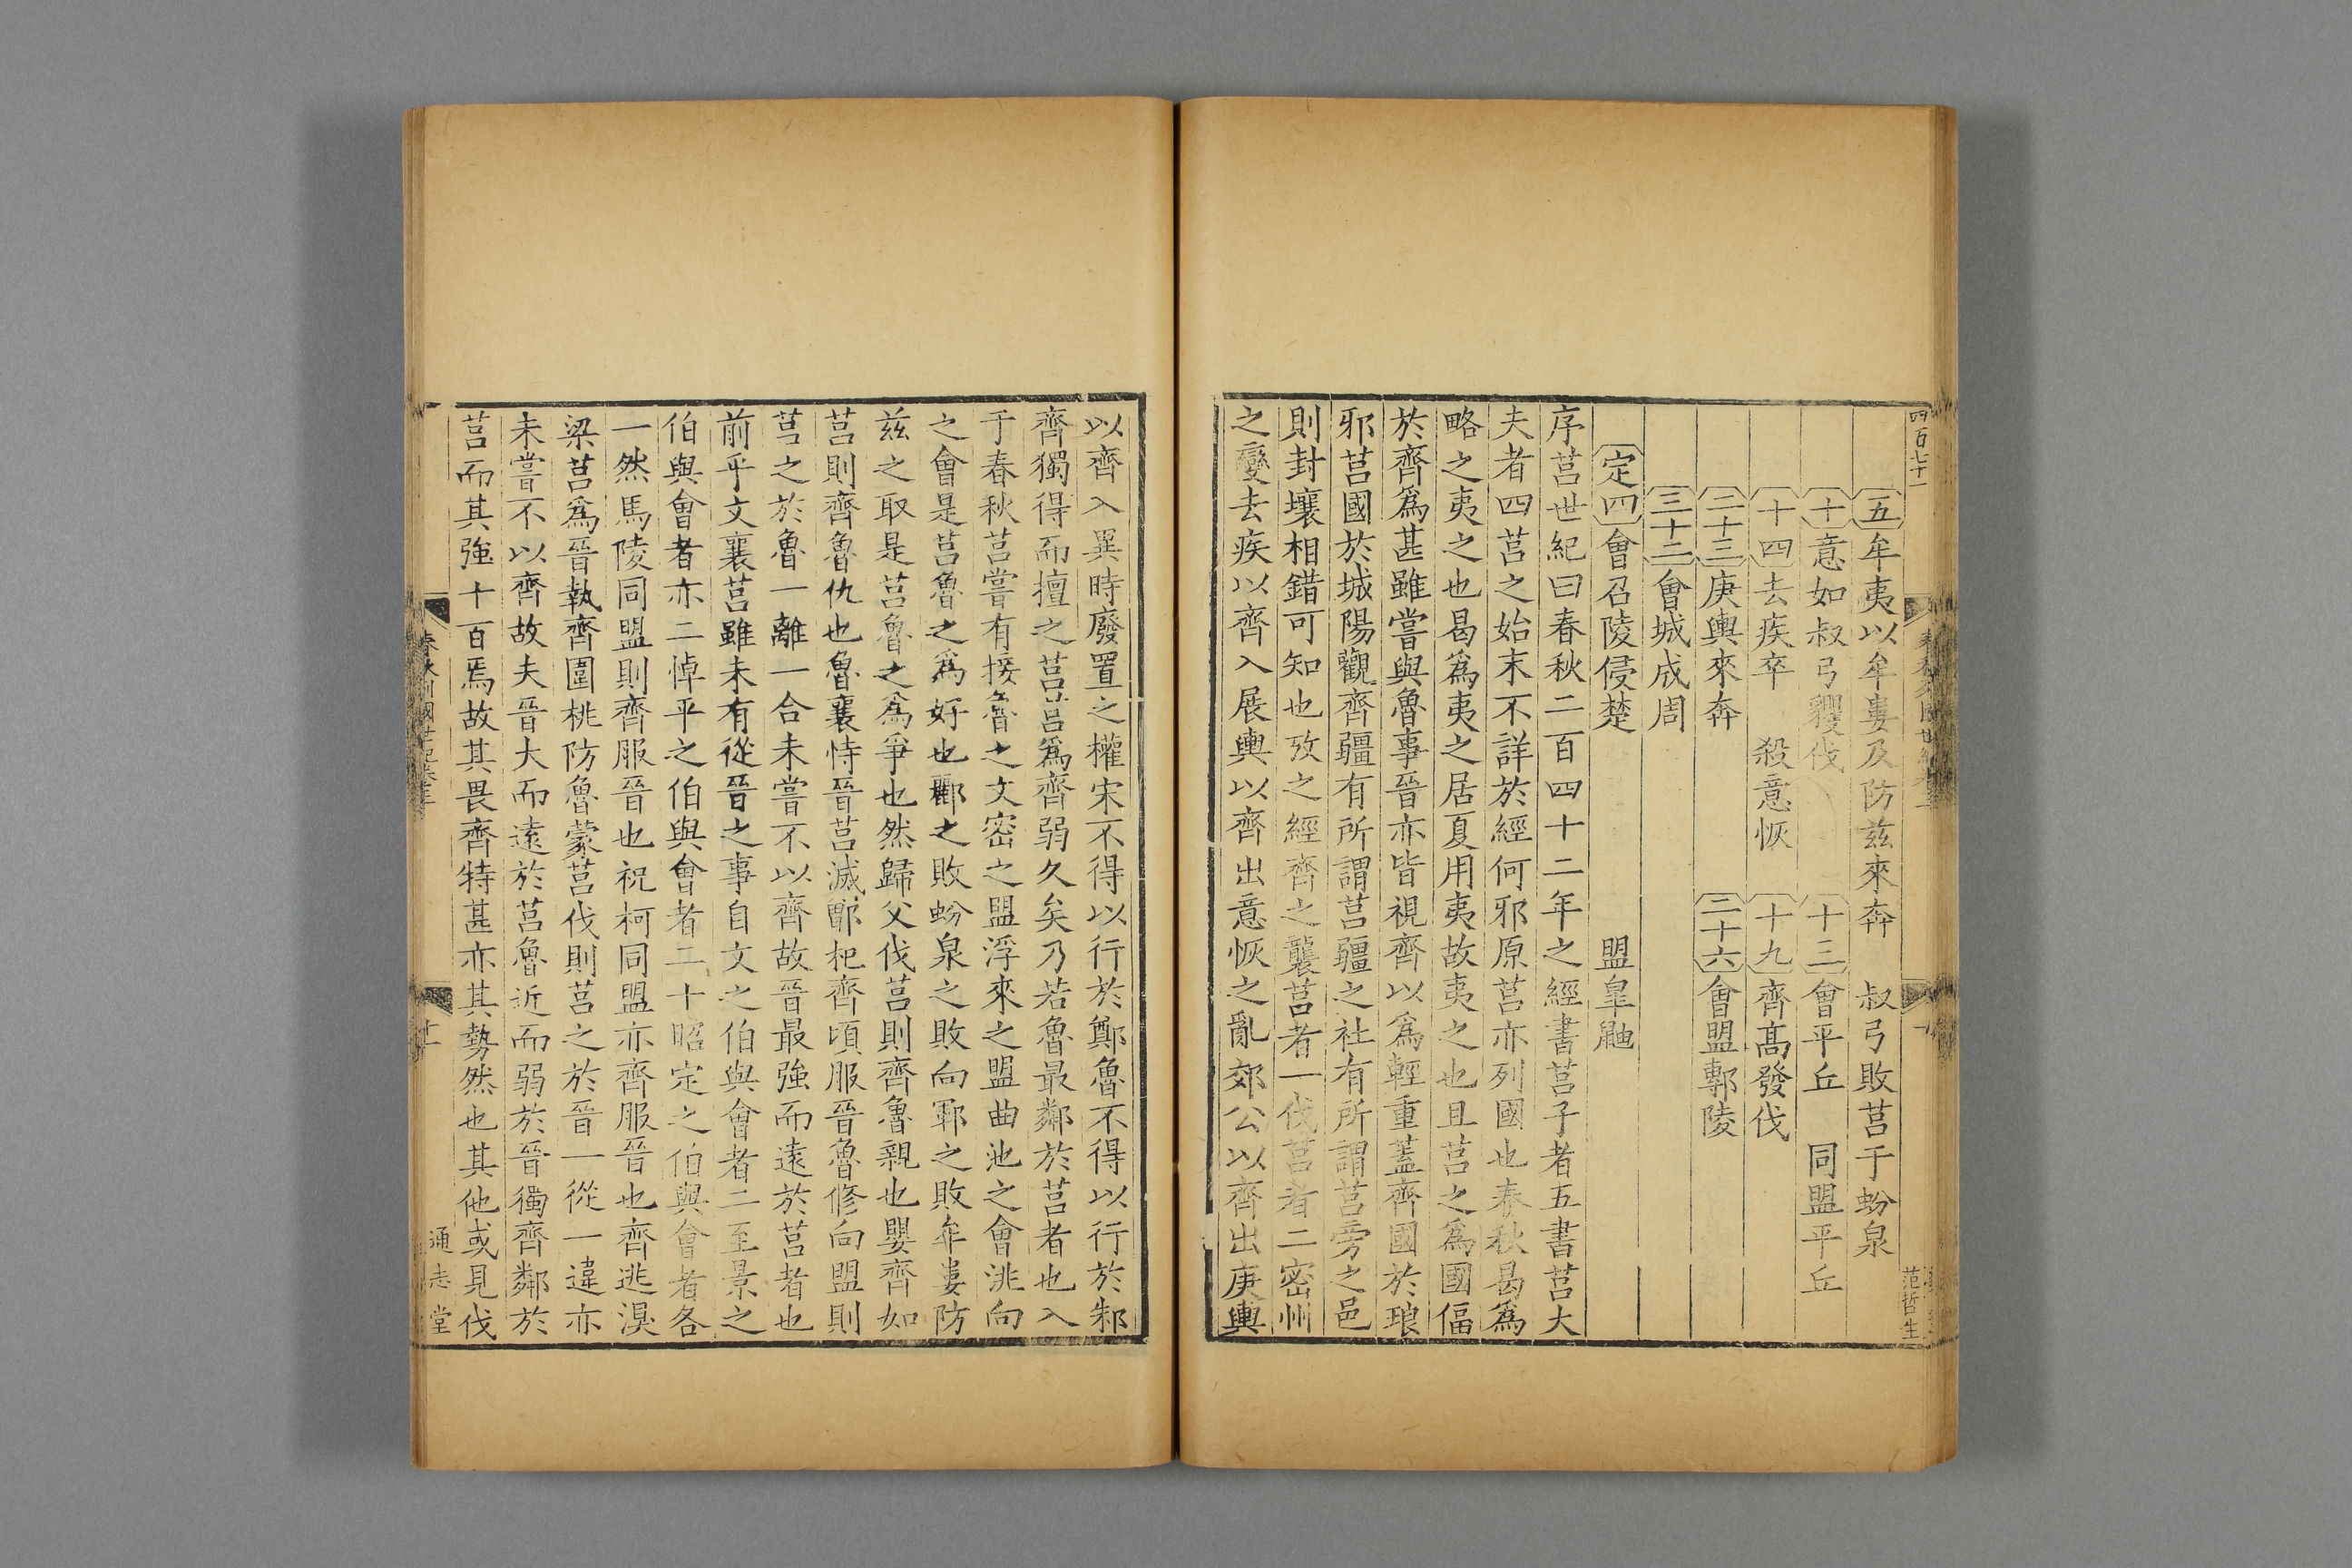 四百七十一
五牟夷以牟婁及防茲來奔 叔弓敗莒于蚡泉
十意如叔弓貜伐 十三會平丘 同盟平丘
十四去疾卒 殺意恢 十九齊髙發伐
二十三庚輿來奔 二十六會盟鄟陵
三十二會城成周
定四會召陵侵楚 盟皐鼬
序莒世紀曰春秋二百四十二年之經書莒子者五書莒大
夫者四莒之始末不詳於經何邪原莒亦列國也春秋曷爲
略之夷之也曷爲夷之居夏用夷故夷之也且莒之爲國偪
於齊爲甚雖嘗與魯事晉亦皆視齊以爲輕重蓋齊國於琅
邪莒國於城陽觀齊疆有所謂莒疆之社有所謂莒旁之邑
則封壤相錯可知也攷之經齊之襲莒者一伐莒者二密州
之變去疾以齊入展輿以齊出意恢之亂郊公以齊出庚輿
范哲生
以齊入異時廢置之權宋不得以行於鄭魯不得以行於邾
齊獨得而擅之莒莒爲齊弱久矣乃若魯最鄰於莒者也入
于春秋莒嘗有接魯之文密之盟浮來之盟曲池之會洮向
之會是莒魯之爲好也酈之敗蚡泉之敗向鄆之敗牟婁防
茲之取是莒魯之爲爭也然歸父伐莒則齊魯親也嬰齊如
莒則齊魯仇也魯襄恃晉莒滅鄫杞齊頃服晉魯修向盟則
莒之於魯一離一合未嘗不以齊故晉最強而遠於莒者也
前乎文襄莒雖未有從晉之事自文之伯與會者二至景之
伯與會者亦二悼平之伯與會者二十昭定之伯與會者各
一然馬陵同盟則齊服晉也祝柯同盟亦齊服晉也齊逃湨
梁莒爲晉執齊圍桃防魯蒙莒伐則莒之於晉一從一違亦
未嘗不以齊故夫晉大而遠於莒魯近而弱於晉獨齊鄰於
莒而其強十百焉故其畏齊特甚亦其勢然也其他或見伐
春秋列國世紀卷三
十一
通志堂